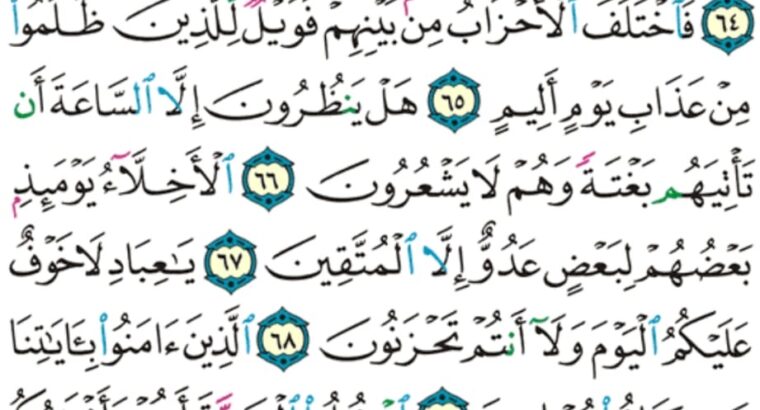 ٦٤ فَٱخْتَلَفَ ٱلْأَحْزَابُ مِنۢ بَيْنِهِمْ فَوَيْلٌ لِّلَّذِينَ ظَلَمُوا۟
مِنْ عَذَابِ يَوْمٍ أَلِيمٍ ٦٥ هَلْ يَنظُرُونَ إِلَّا ٱلسَّاعَةَ أَن
تَأْتِيَهُم بَغْتَةً وَهُمْ لَا يَشْعُرُونَ ٦٦ ٱلْأَخِلَّآءُ يَوْمَئِذٍۭ
بَعْضُهُمْ لِبَعْضٍ عَدُوٌّ إِلَّا ٱلْمُتَّقِينَ ٦٧ يَـٰعِبَادِ لَا خَوْفٌ
عَلَيْكُمُ ٱلْيَوْمَ وَلَآ أَنتُمْ تَحْزَنُونَ ٦٨ ٱلَّذِينَ ءَامَنُوا۟ بِـَٔايَـٰتِنَا